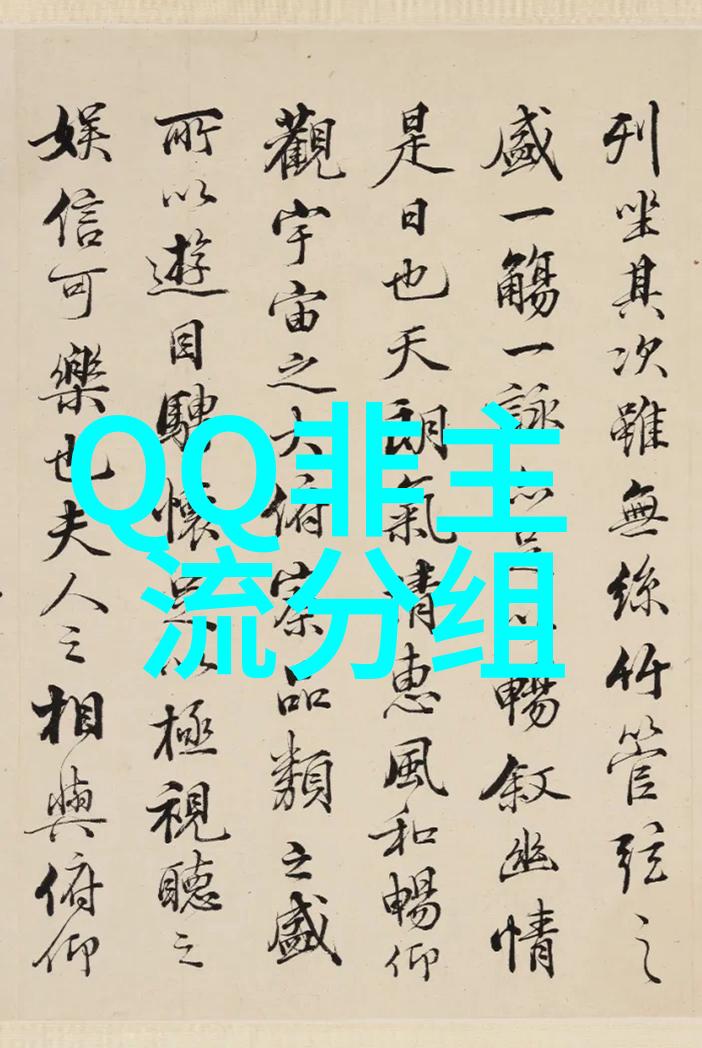 QQ非主
流分组
列坐其次雖無絲竹管弦之
盛一觴一詠亦足以暢叙幽情
是日也天朗氣清惠風和暢仰
觀宇宙之大俯察品類之盛
所以遊目騁懷足以極視聽之
娛信可樂也夫人之相與俯仰